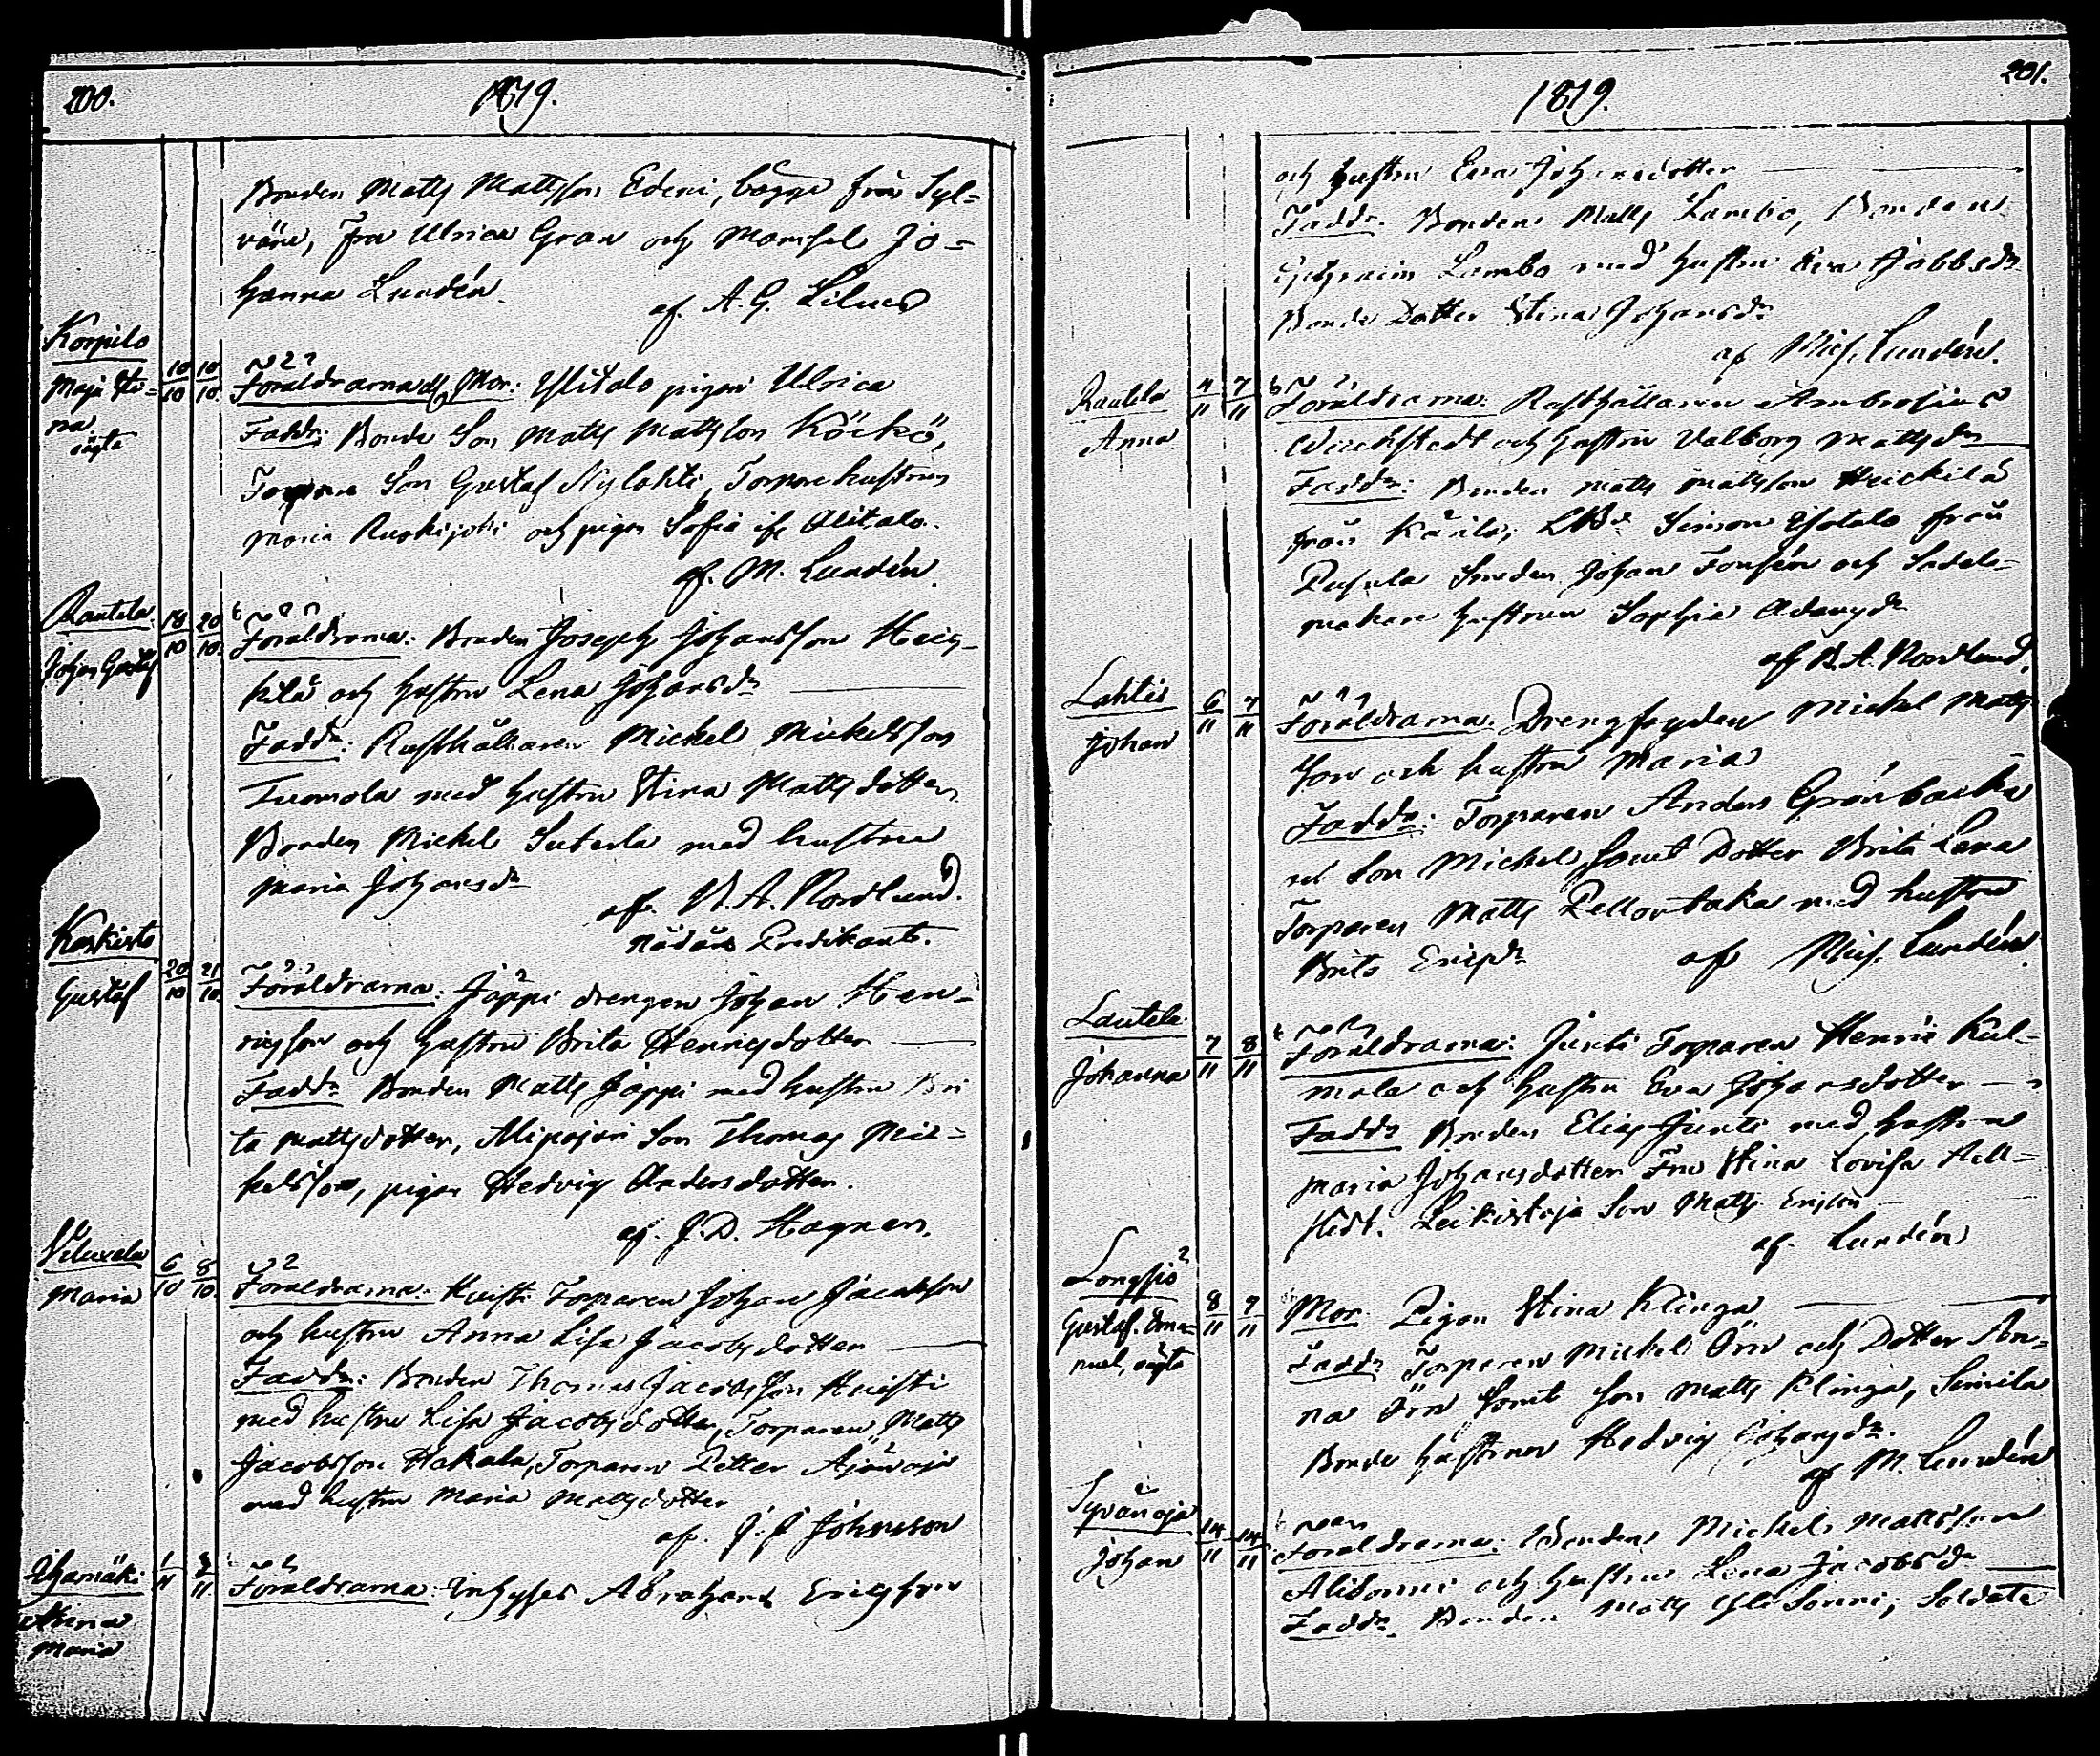 200.
1819.
Bonden Matts Mattsson Edeni, bägge från Syl-
väne, Fru Ulrica Gran och Mamsel Jo-
hanna Lundén.
af. A. G. Lilius
Korpilo
Maja Sti-
na
oägta
10/10 10/10.
Föräldrarna Mor: Ylitalo pigan Ulrica
Faddr: Bonde Son Matts Mattsson Köckö,
Torpare Son Gustaf Nylahti, Torpare hustrun
Maria Ruskijoki och pigan Sofia Alitalo.
af. M. Lundén.
Rautela
Johan Gustaf
18/10 20/10.
Föräldrarna: Bonden Joseph Johansson Heic-
kilä och hustru Lena Johansdr
Faddr: Rusthållaren Michel Mickelsson
Tuomola med hustru Stina Mattsdotter
Bonden Mickel Suterla med hustru
Maria Johansdr
af. N. A. Nordlund.
nådårs Predikant.
Koskisto
Gustaf
20/10 21/10
Föräldrarna: Jäppi drengen Johan Hen-
ricsson och hustru Brita Henricsdotter
Faddr Bonden Matts Jäppi med hustru Bri
ta Mattsdotter, Alipajari Son Thomas Mic-
kelsson, pigan Hedvig Andersdotter.
af. J. D. Hagner.
Viluxela
Maria
6/10 8/10.
Föräldrarna: Huisti Torparen Johan Jacobsson
och hustru Anna Lisa Jacobsdotter
Faddr: Bonden Thomas Jacobsson Huisti
med hustru Lisa Jacobsdotter, Torparen Matts
Jacobsson Hakala, Torparen Petter Ajänoja
med hustru Maria Mattsdotter
af. J. J Johnsson
Ihamäki
Stina
Maria
1/11 3/11.
Föräldrarna: Inhyses Abraham Ericsson
201.
1819.
och hustru Eva Johansdotter
Faddr. Bonden Matts Lambo, Bonden
Ephraim Lambo med hustru Eva Jakobsdr
Bonde Dotter Stina Johansdr
af Mich. Lundén.
Rautela
Anna
4/11 7/11
Föräldrarna: Rusthållaren Ambrosius
Wuchstedt och hustru Valborg Mattsdr
Faddr: Bonden Matts Mattsson Heickilä
från Kärilä, Simon Isotalo från
Pusula Smeden Johan Fonsén och Sadel-
makare hustrun Sophia Adamsdr
af N. A. Nordlund.
Lahtis
Johan
6/11 7/11
Föräldrarna: Drengfogden Mickel Matts
son och hustru Maria
Faddr: Torparen Anders Grönbacka
Son Michel, samt Dotter Brita Lena
Torparen Matts Pellontaka med hustru
Brita Ericsdr
af Mich. Lundén.
Lautela
Johanna
7/11 8/11
Föräldrarna: Junti Torparen Henric Kul-
mala och hustru Eva Johansdotter
Faddr Bonden Elias Junti med hustru
Maria Johansdotter Fru Stina Lovisa Hell-
stedt. Leikistoja Son Matts Ericson
af. Lundén
Longsjo
Gustaf Ema-
nuel, oägta
8/11 9/11
Mor: Pigan Stina Klinga
Faddr Torparen Mickel Örn och Dotter An-
na Örn samt Son Matts Klinga, Simila
Bonde hustrun Hedvig Johansdr.
af M. Lundén
Syvänoja
Johan
14/11 14/11
Föräldrarna: Bonden Michel Mattsson
Alisonni och hustru Lena Jacobsdr
Faddr Bonden Matts Ylisonni, Soldate